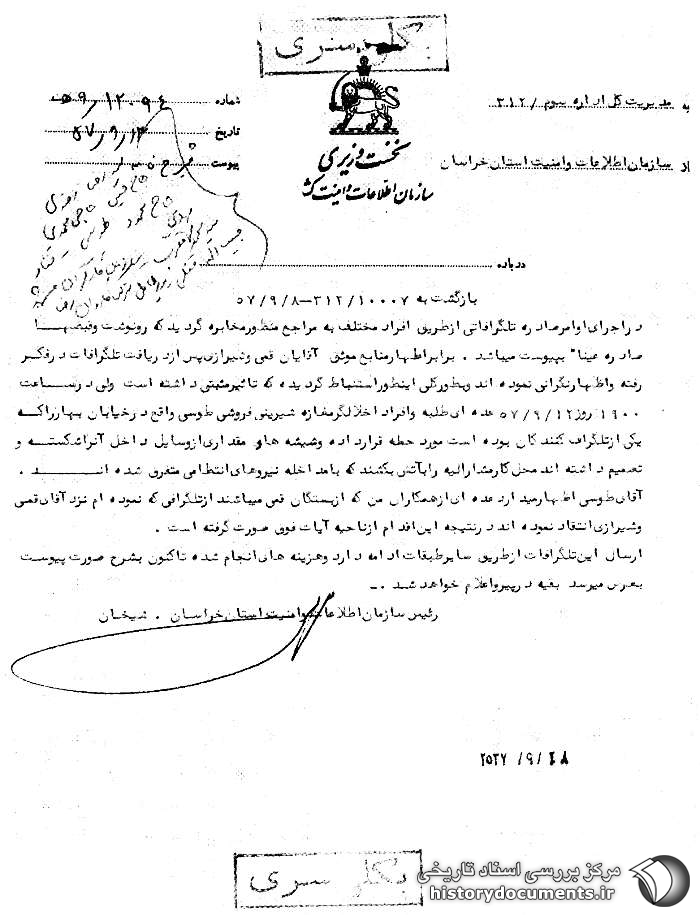 بکلی سری
به مدیریت کل اداره سوم / ۳۱۲
شماره ۹/۱۲۰۹۴ هـ
از سازمان اطلاعات و امنیت استان خراسان
نخست وزیری
سازمان اطلاعات و امنیت کشور
تاریخ ۵۷/۹/۱۳
پیوست
درباره
بازگشت به ۳۱۲/۱۰۰۰۷-۵۷/۹/۸
در اجرای اوامر صادره تلگرافاتی از طریق افراد مختلف به مراجع منظور مخابره گردید که رونوشت و قبضهای
صادره عینا" بپیوست میباشد . برابر اظهار منابع موثق آقایان قمی و شیرازی پس از دریافت تلگرافات در فکر
رفته و اظهار نگرانی نموده اند و بطور کلی اینطور استنباط گردیده که تاثیر مثبتی داشته است ولی در ساعت
۱۹۰۰ روز ۵۷/۹/۱۲ عده ای طلبه و افراد اخلالگر مغازه شیرینی فروشی طوسی واقع در خیابان بهار را که
یکی از تلگراف کنندگان بوده است مورد حمله قرار داده و شیشه ها و مقداری از وسایل داخل آنرا شکسته و
تصمیم داشته اند محل کار مشارالیه را بآتش بکشند که با مداخله نیروهای انتظامی متفرق شده انــــد .
آقای طوسی اظهار میدارد عده ای از همکاران من که از بستگان قمی میباشند از تلگرافی که نموده ام نزد آقای قمی
و شیرازی انتقاد نموده اند در نتیجه این اقدام از ناحیه آیات فوق صورت گرفته است .
ارسال این تلگرافات از طریق سایر طبقات ادامه دارد و هزینه های انجام شده تاکنون بشرح صورت پیوست
بعرض میرسد بقیه در پیرو اعلام خواهد شد . ــ
رئیس سازمان اطلاعات و امنیت استان خراسان . شیخان
۲۵۳۷/۹/۱۸
بکلی سری
مرکز بررسی اسناد تاریخی
historydocuments.ir